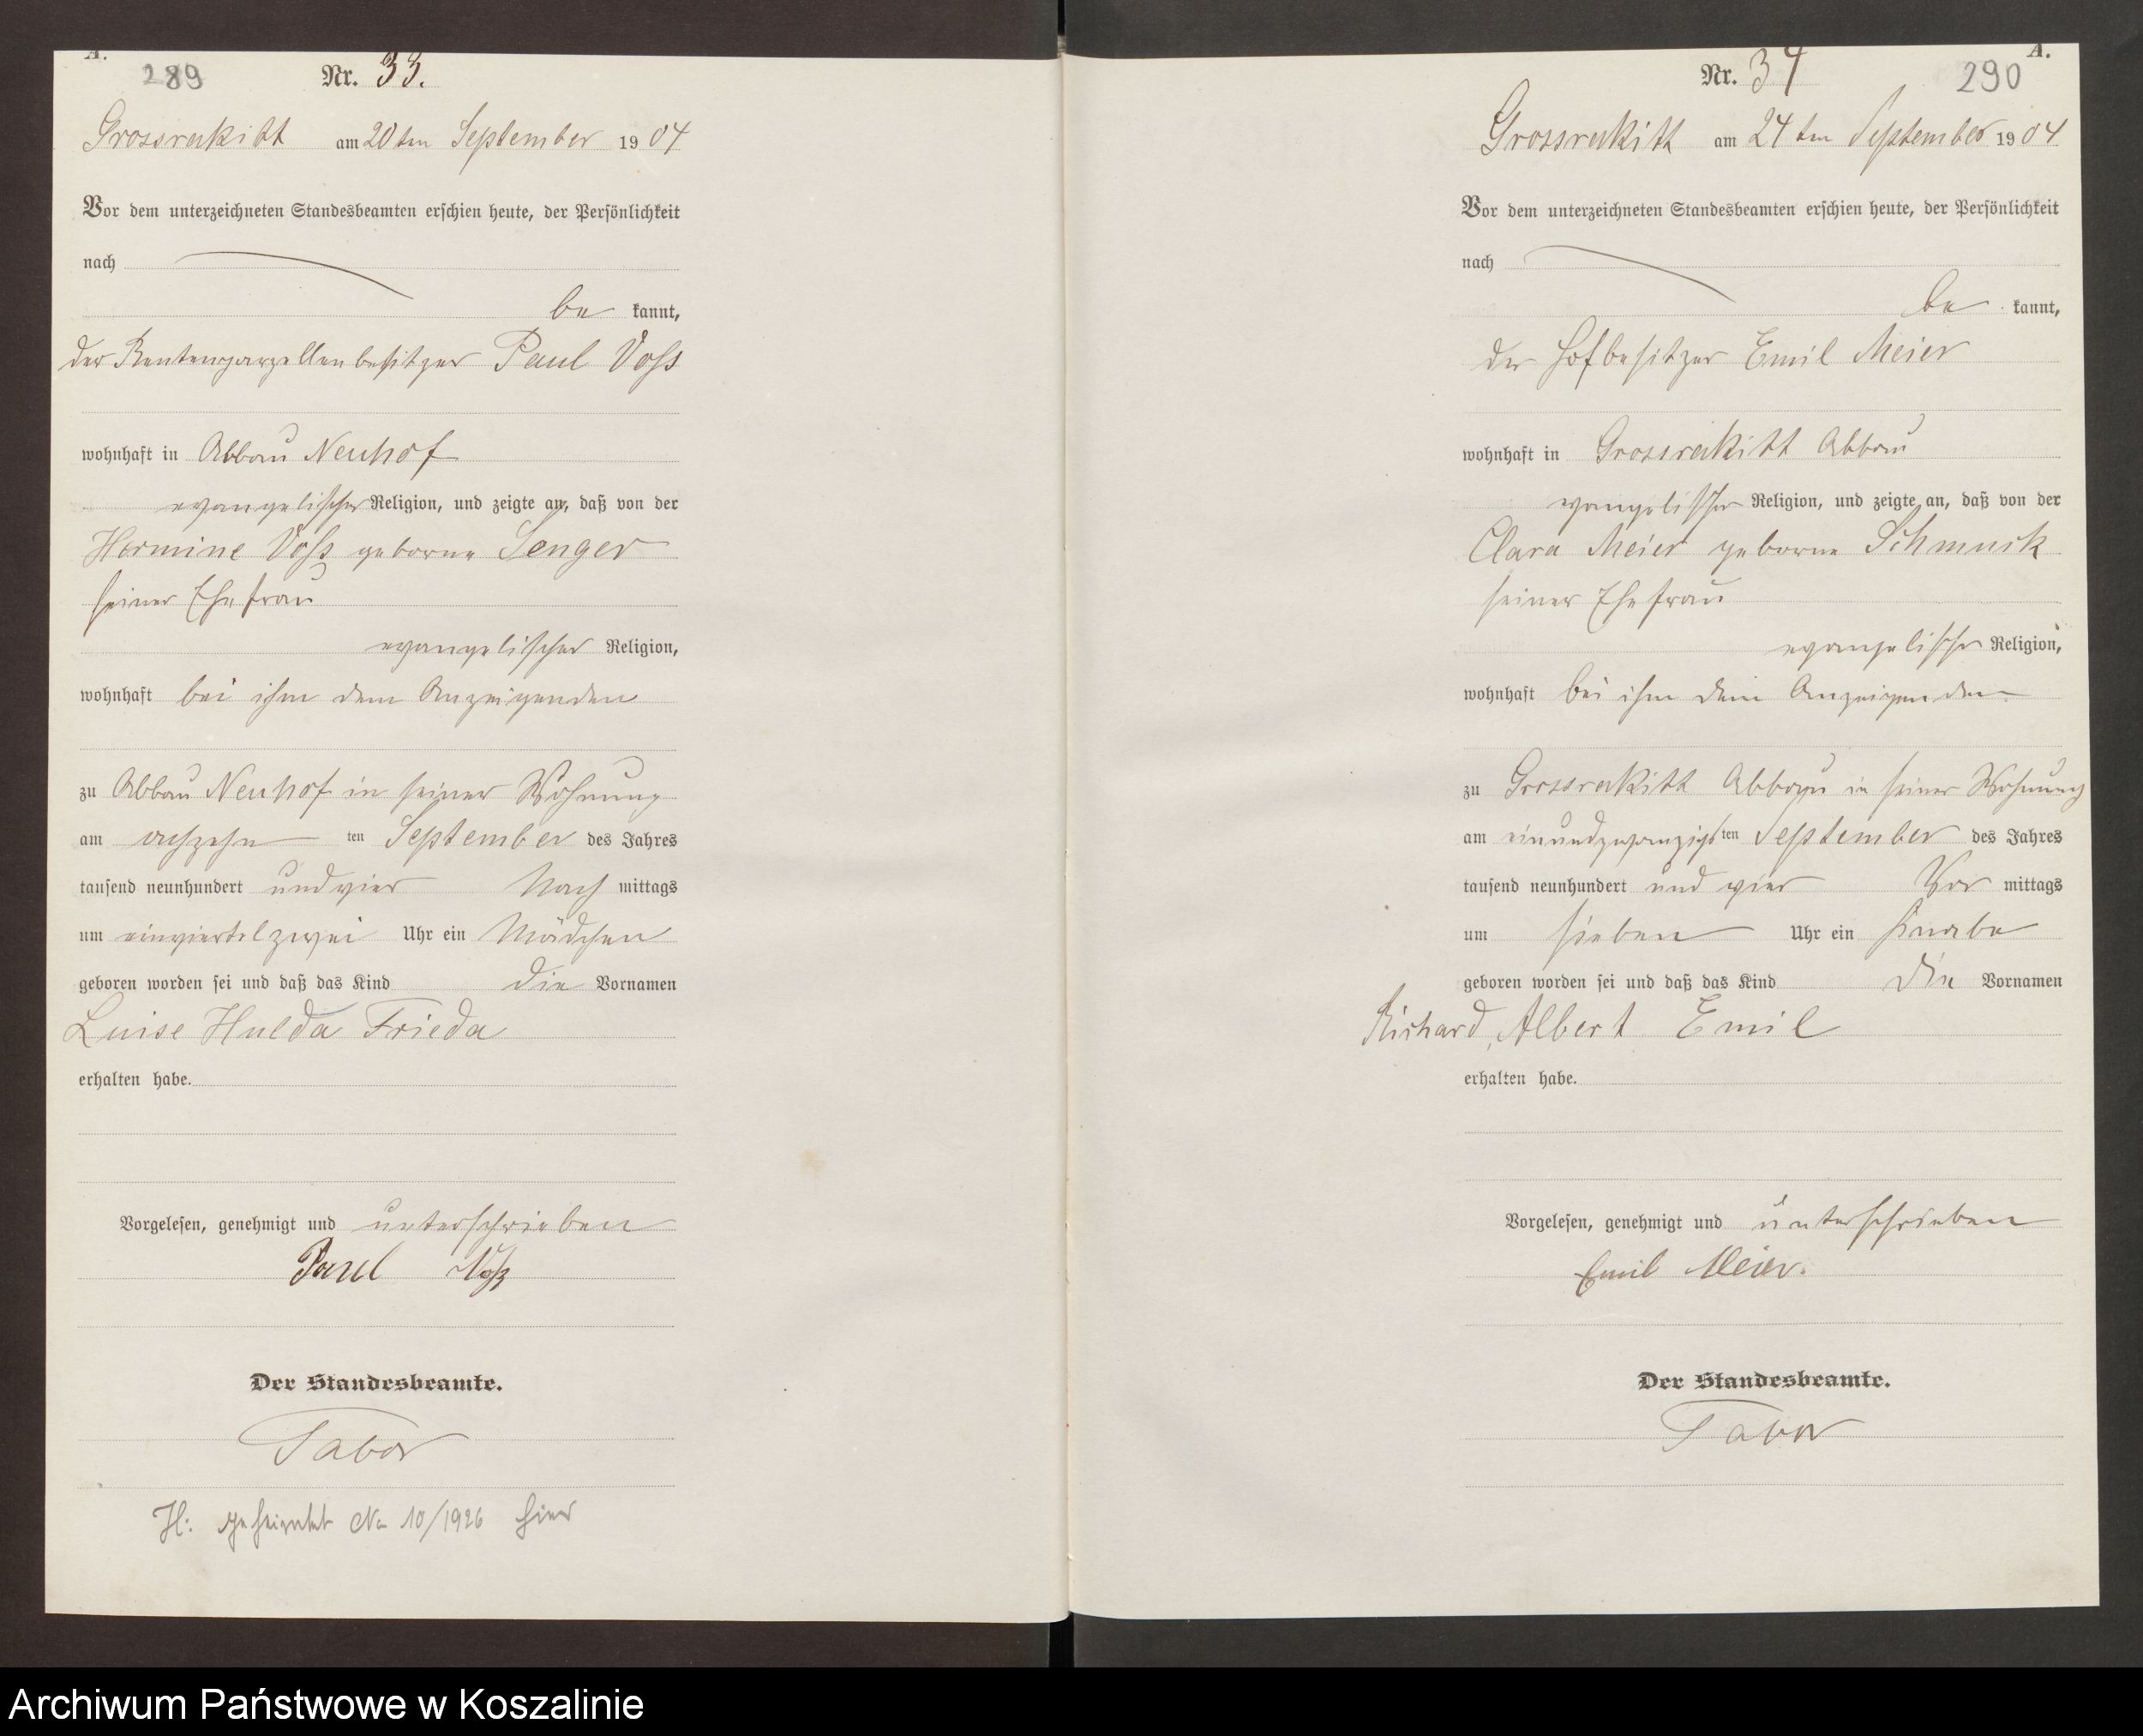 A.
289
Nr. 33.
Grossrakitt am 20ten September 1904
Vor dem unterzeichneten Standesbeamten erschien heute, der Persönlichkeit
nach
be kannt,
der Rentenparzellenbesitzer Paul Voss
wohnhaft in Abbau Neuhof
evangelischer Religion, und zeigte an, daß von der
Hermine Voss geborne Senger
seiner Ehefrau
evangelischer Religion,
wohnhaft bei ihm dem Anzeigenden
zu Abbau Neuhof in seiner Wohnung
am achzehn ten September des Jahres
tausend neunhundert und vier Nach mittags
um einviertel zwei Uhr ein Mädchen
geboren worden sei und daß das Kind die Vornamen
Luise Hulda Frieda
erhalten habe.
Vorgelesen, genehmigt und unterschrieben
Paul Voß
Der Standesbeamte.
Tabor
H: geheiratet No 10/1926 hier
A.
290
Nr. 34
Grossrakitt am 24ten September 1904
Vor dem unterzeichneten Standesbeamten erschien heute, der Persönlichkeit
nach
be kannt,
der Hofbesitzer Emil Meier
wohnhaft in Grossrakitt Abbau
evangelischer Religion, und zeigte an, daß von der
Clara Meier geborne Schmuck
seiner Ehefrau
evangelischer Religion,
wohnhaft bei ihm dem Anzeigenden
zu Grossrakitt Abbau in seiner Wohnung
am einundzwanzigsten September des Jahres
tausend neunhundert und vier Vor mittags
um sieben Uhr ein Knabe
geboren worden sei und daß das Kind die Vornamen
Richard, Albert Emil
erhalten habe.
Vorgelesen, genehmigt und unterschrieben
Emil Meier.
Der Standesbeamte.
Tabor
Archiwum Państwowe w Koszalinie